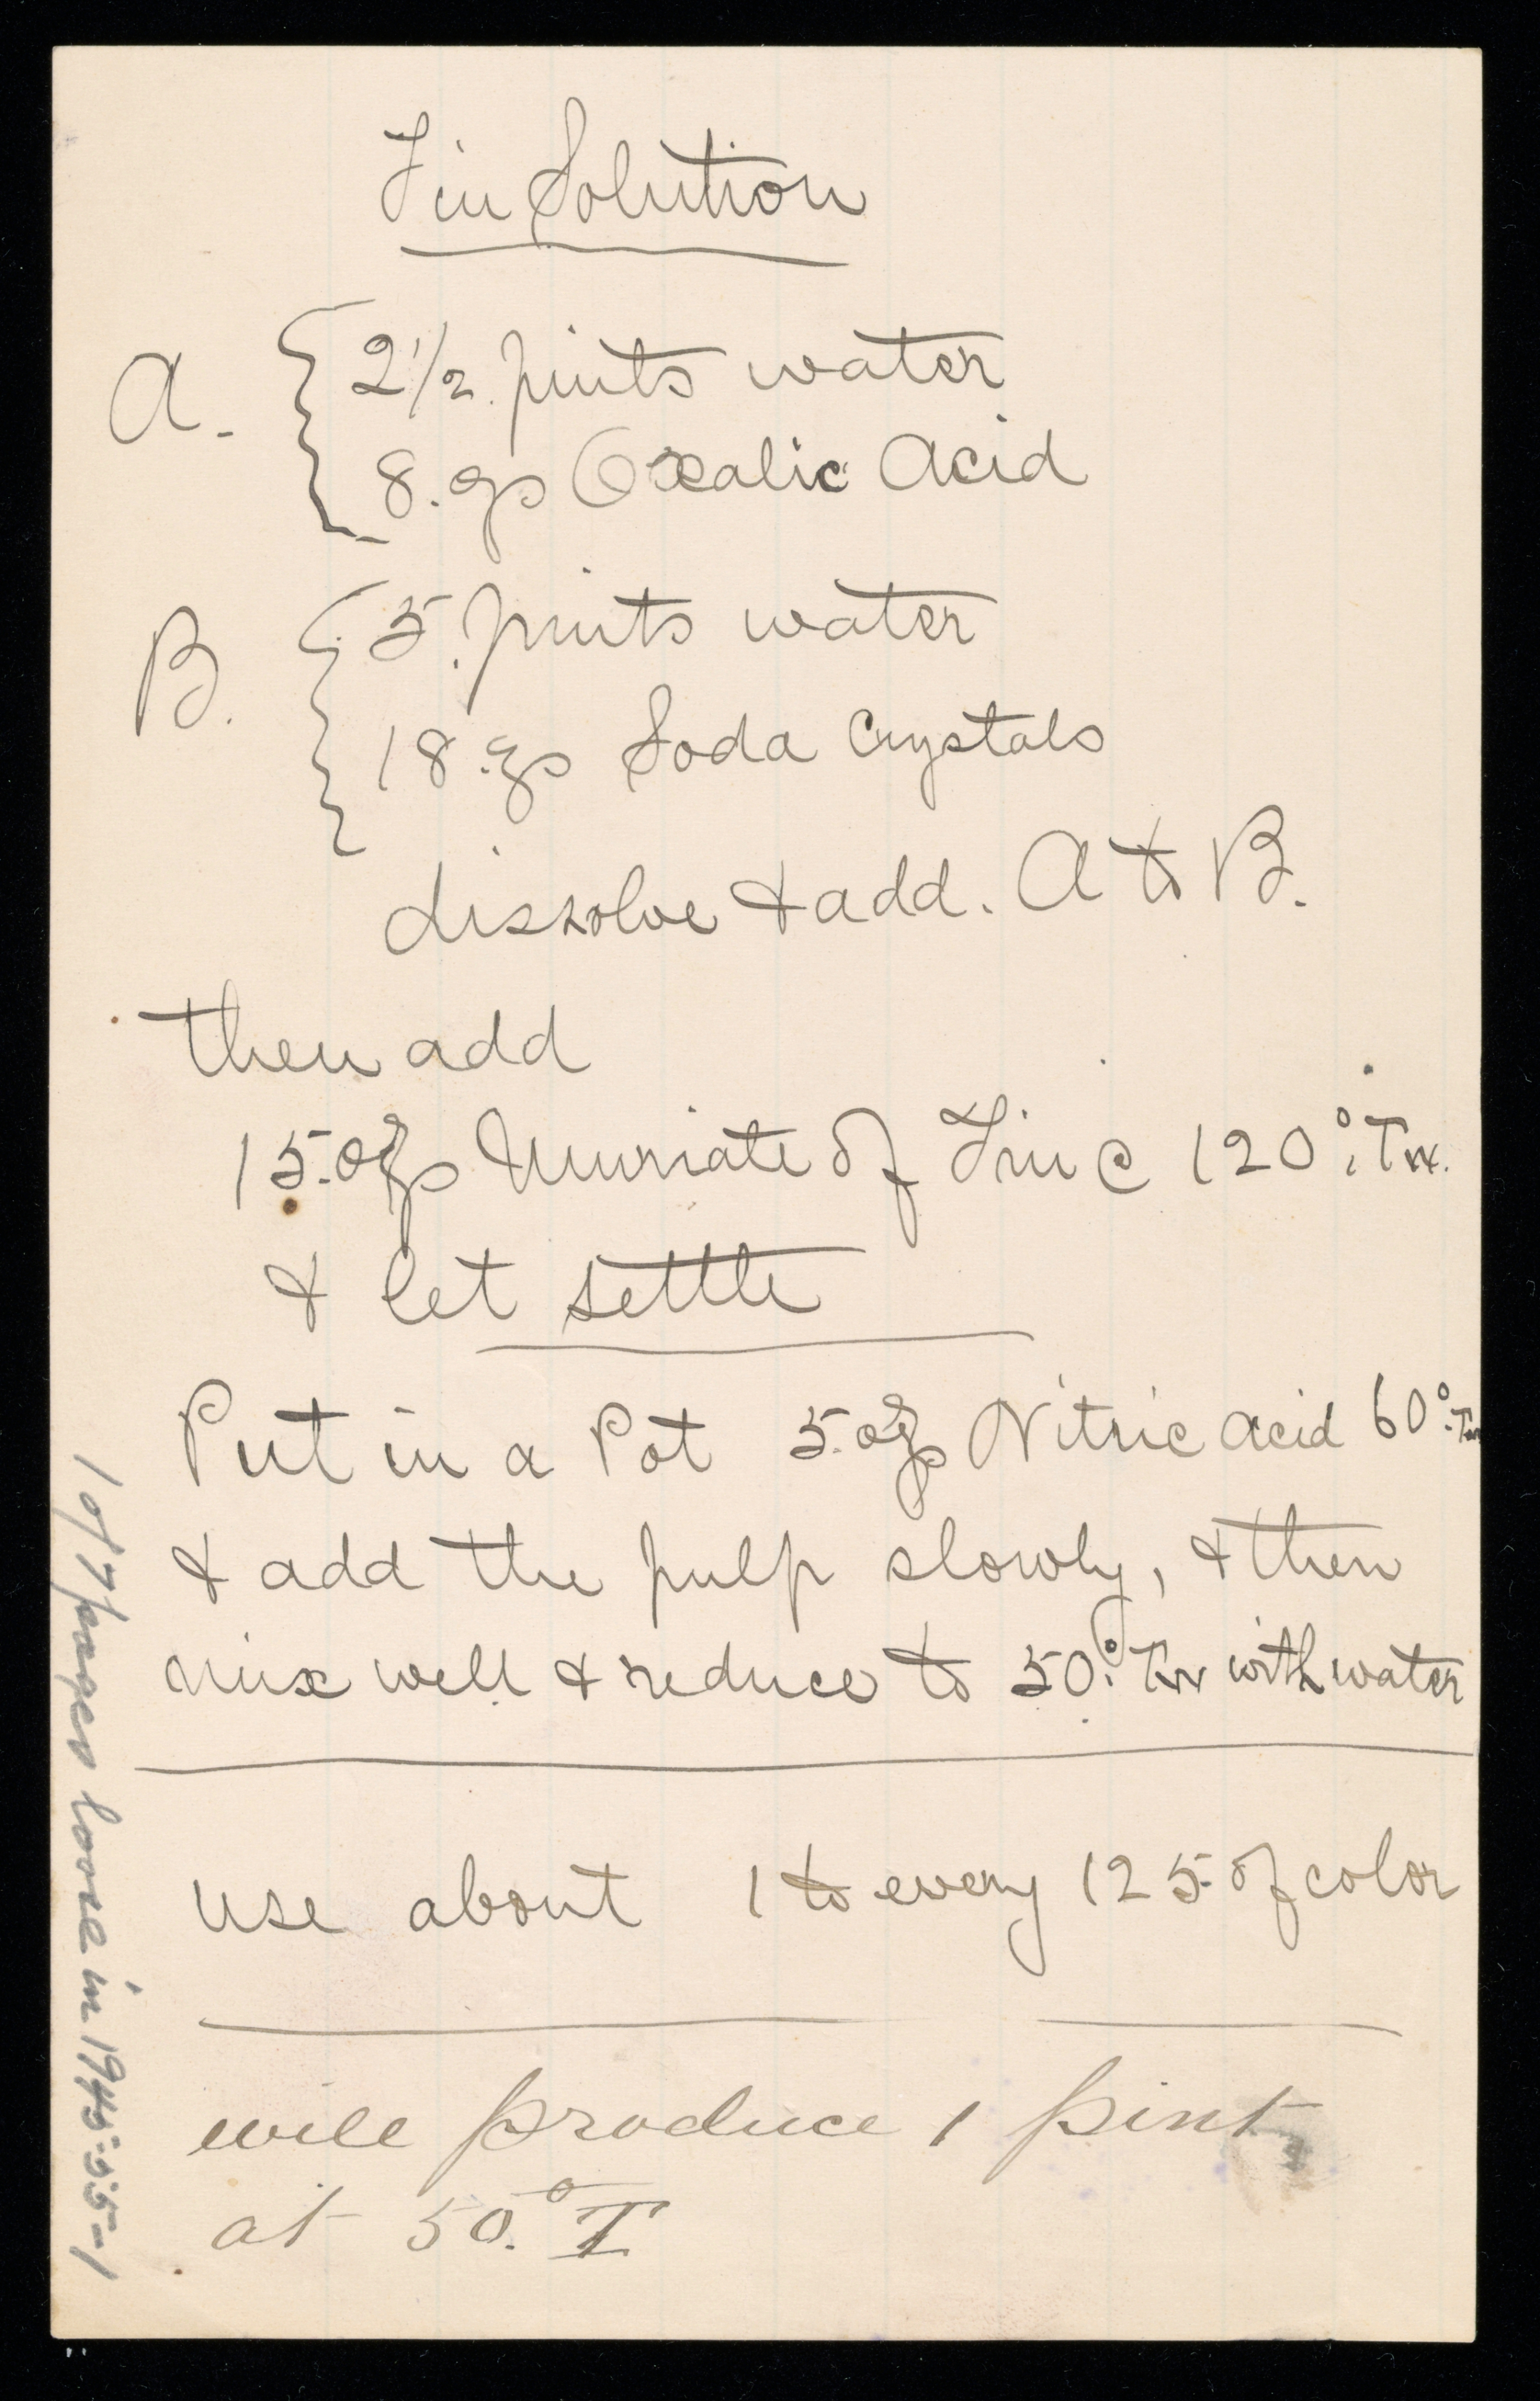 Tin Solution
A. 2 1/2 pints water
8. ozs Oxalic Acid
B. 5. pints water
18. ozs Soda Crystals
dissolve & add. A to B.
then add
15. ozs Muriate of Tin @ 120° Tw.
& let settle
Put in a Pot 5. ozs Nitric acid 60° Tw
& add the pulp slowly, & then
mix well & reduce to 50° Tw with water
use about 1 to every 125 of color
will produce 1 pint
at 50.° T
1 of 7 pages loose in 1945:55-1